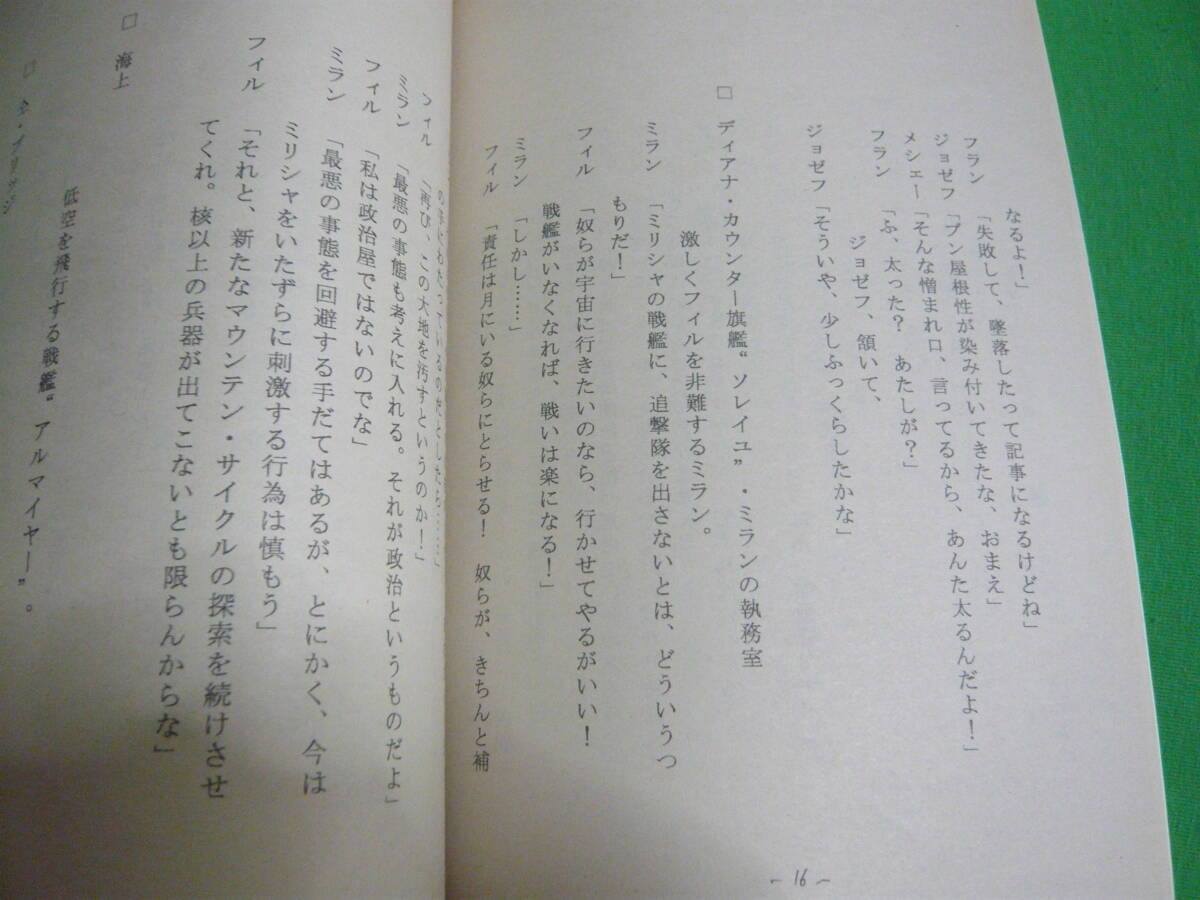 なるよ！」
フラン「失敗して、墜落したって記事になるけどね」
ジョゼフ「ブン屋根性が染み付いてきたな、おまえ」
メシェー「そんな憎まれ口、言ってるから、あんた太るんだよ！」
フラン「ふ、太った？　あたしが？」
ジョゼフ、頷いて、
ジョゼフ「そういや、少しふっくらしたかな」
□　ディアナ・カウンター旗艦“ソレイユ”・ミランの執務室
激しくフィルを非難するミラン。
ミラン「ミリシャの戦艦に、追撃隊を出さないとは、どういうつ
もりだ！」
フィル「奴らが宇宙に行きたいのなら、行かせてやるがいい！
戦艦がいなくなれば、戦いは楽になる！」
ミラン「しかし……」
フィル「責任は月にいる奴らにとらせる！　奴らが、きちんと補
- 16 -
の手にわたっているのだとしたら……」
フィル「再び、この大地を汚すというのか！」
ミラン「最悪の事態も考えに入れる。それが政治というものだよ」
フィル「私は政治屋ではないのでな」
ミラン「最悪の事態を回避する手だてはあるが、とにかく、今は
ミリシャをいたずらに刺激する行為は慎もう」
フィル「それと、新たなマウンテン・サイクルの探索を続けさせ
てくれ。核以上の兵器が出てこないとも限らんからな」
□　海上
低空を飛行する戦艦“アルマイヤー”。
□　全・ブリッジ